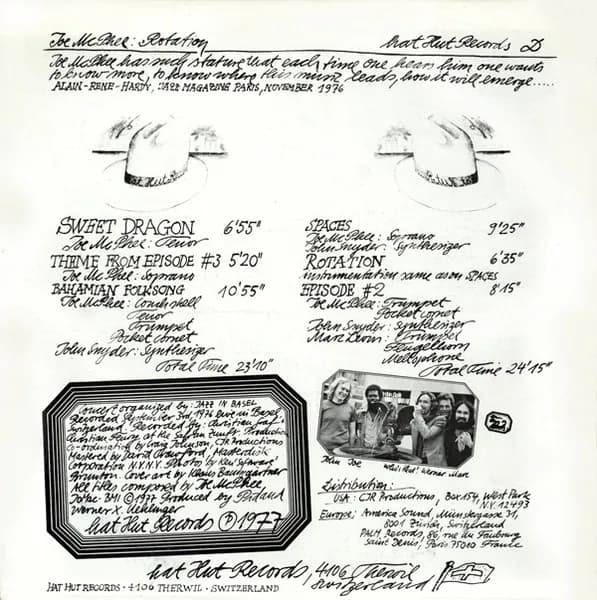 Joe McPhee: Rotation
hat Hut Records D
Joe McPhee has such stature that each time one hears him one wants
to know more, to know where this music leads, how it will emerge.....
ALAIN-RENE-HARDY, JAZZ MAGAZINE PARIS, NOVEMBER 1976
SWEET DRAGON 6'55"
Joe McPhee: Tenor
THEME FROM EPISODE #3 5'20"
Joe McPhee: Soprano
BAHAMIAN FOLKSONG 10'55"
Joe McPhee: Conch shell
Tenor
Trumpet
Pocket cornet
John Snyder: Synthesizer
Total Time 23'10"
SPACES 9'25"
Joe McPhee: Soprano
John Snyder: Synthesizer
ROTATION 6'35"
instrumentation same as on SPACES
EPISODE #2 8'15"
Joe McPhee: Trumpet
Pocket cornet
John Snyder: Synthesizer
Marc Levin: Trumpet
Fleugelhorn
Mellophone
Total Time 24'15"
Concert organized by: JAZZ IN BASEL
Recorded September 3rd, 1976 live in Basel,
Switzerland. Recorded by: Christian Graf,
Christian Feurer, at the Safran Zunft. Production
Co-ordination by Craig Johnson, CJR Productions
Mastered by David Crawford, Masterdisk
Corporation N.Y. N.Y. Photos by Ken
Brunton. Cover art by Klaus Baumgartner
All titles composed by Joe McPhee,
BMI © 1977 Produced by
Werner X. Uehlinger
hat Hut Records Ⓟ 1977
John Joe Werner Marc
Distribution:
USA: CJR Productions, Box 154, West Park
N.Y. 12493
Europe: America Sound, Münstergasse 31,
8001 Zürich, Switzerland
PALM Records, 86, rue du Faubourg
Saint Denis, Paris 75010 France
hat Hut Records, 4106 Therwil
Switzerland
HAT HUT RECORDS · 4106 THERWIL · SWITZERLAND